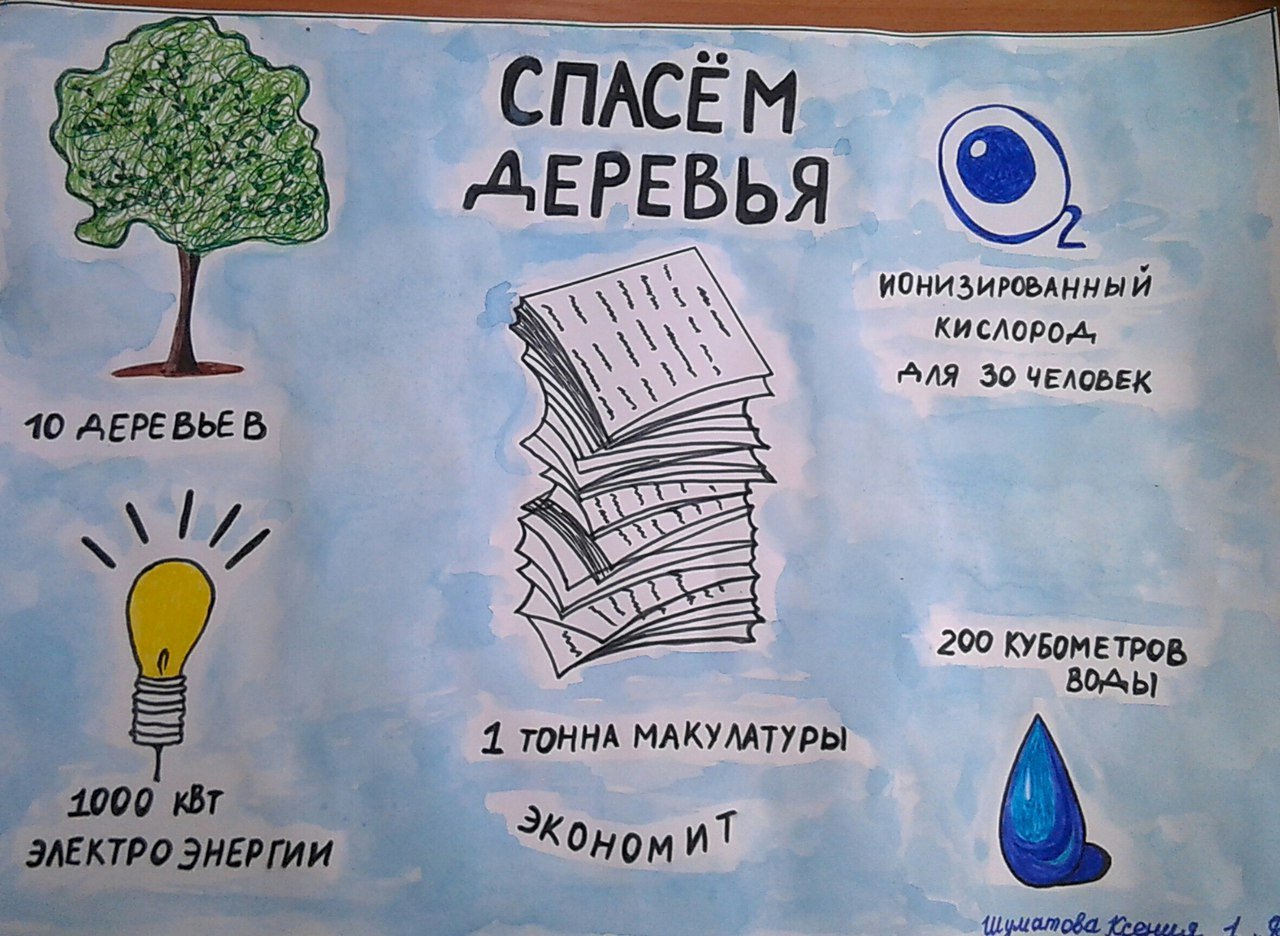 СПАСЁМ
ДЕРЕВЬЯ
10 ДЕРЕВЬЕВ
2
ИОНИЗИРОВАННЫЙ
КИСЛОРОД
ДЛЯ 30 ЧЕЛОВЕК
1000 кВт
ЭЛЕКТРОЭНЕРГИИ
1 ТОННА МАКУЛАТУРЫ
ЭКОНОМИТ
200 КУБОМЕТРОВ
ВОДЫ
Шуматова Ксения 1